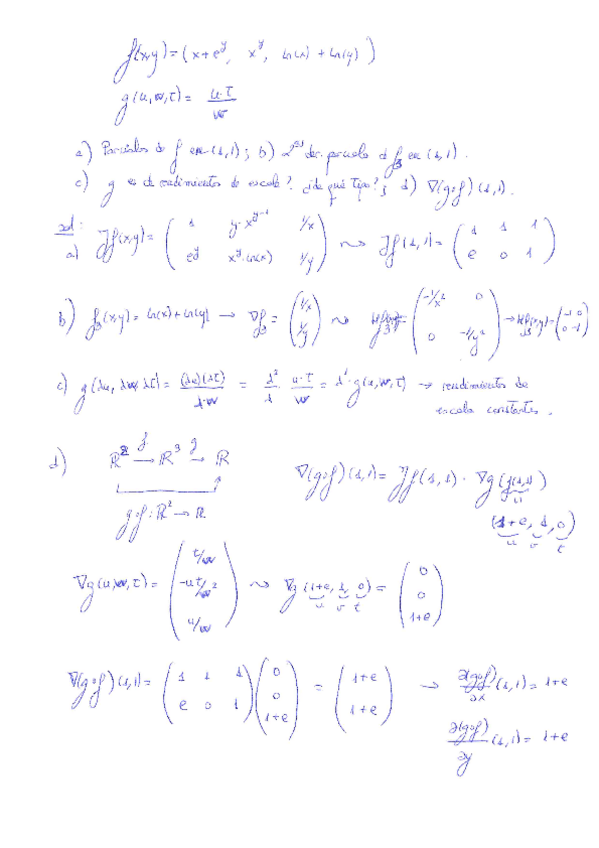 f(x,y) = (x+e^y, x^y, ln(x)+ln(y))
g(u,v,t) = u·t / v
a) Parciales de f en (1,1); b) 2ªs der. parciales de f₃ en (1,1).
c) g es de rendimientos de escala? ¿de qué tipo?; d) ∇(g∘f)(1,1).
sol:
a) Jf(x,y) = ( 1 y·x^(y-1) 1/x ; e^y x^y·ln(x) 1/y ) ⇝ Jf(1,1) = ( 1 1 1 ; e 0 1 )
b) f₃(x,y) = ln(x)+ln(y) → ∇f₃ = ( 1/x ; 1/y ) ⇝ Hf₃(x,y) = ( -1/x² 0 ; 0 -1/y² ) → Hf₃(1,1) = ( -1 0 ; 0 -1 )
c) g(λu, λv, λt) = (λu)(λt) / λ·v = λ²/λ · u·t/v = λ¹·g(u,v,t) → rendimientos de
escala constantes.
d) ℝ² →f ℝ³ →g ℝ
g∘f: ℝ² → ℝ
∇(g∘f)(1,1) = Jf(1,1) · ∇g(f(1,1))
(1+e, 1, 0)
u v t
∇g(u,v,t) = ( t/v ; -ut/v² ; u/v ) ⇝ ∇g(1+e, 1, 0) = ( 0 ; 0 ; 1+e )
u v t
∇(g∘f)(1,1) = ( 1 1 1 ; e 0 1 ) ( 0 ; 0 ; 1+e ) = ( 1+e ; 1+e ) → ∂(g∘f)/∂x (1,1) = 1+e
∂(g∘f)/∂y (1,1) = 1+e